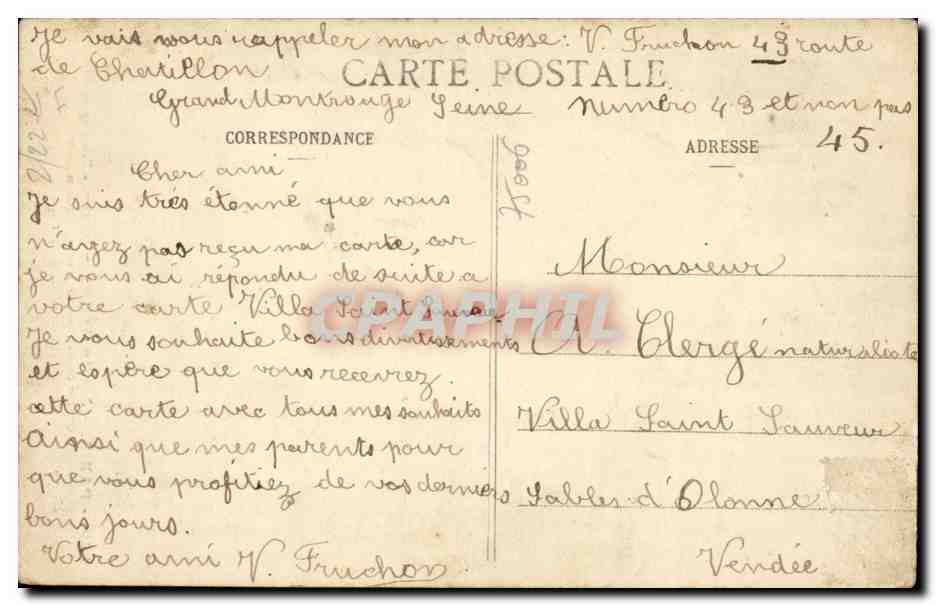 Je vais vous rappeler mon adresse: V. Fruchon 43 route
de Chatillon
CARTE POSTALE
Grand Montrouge Seine Numéro 43 et non pas
45.
CORRESPONDANCE
Cher ami
Je suis très étonné que vous
n'ayez pas reçu ma carte, car
je vous ai répondu de suite a
votre carte Villa Saint Sauveur
Je vous souhaite bons divertissements
et espère que vous recevrez
cette carte avec tous mes souhaits
Ainsi que mes parents pour
que vous profitiez de vos derniers
bons jours.
Votre ami V. Fruchon
ADRESSE
Monsieur
A. Clergé naturaliste
Villa Saint Sauveur
Sables d'Olonne
Vendée
CPAPHIL